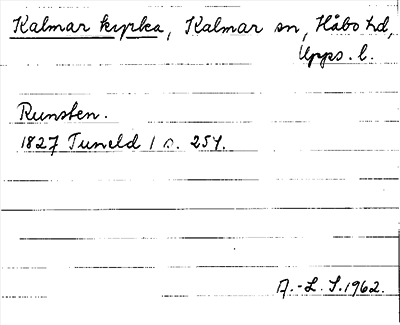 Kalmar kyrka, Kalmar sn, Håbo hd,
Upps. l.
Runsten.
1827 Tuneld 1 s. 254.
A.-L. S. 1962.